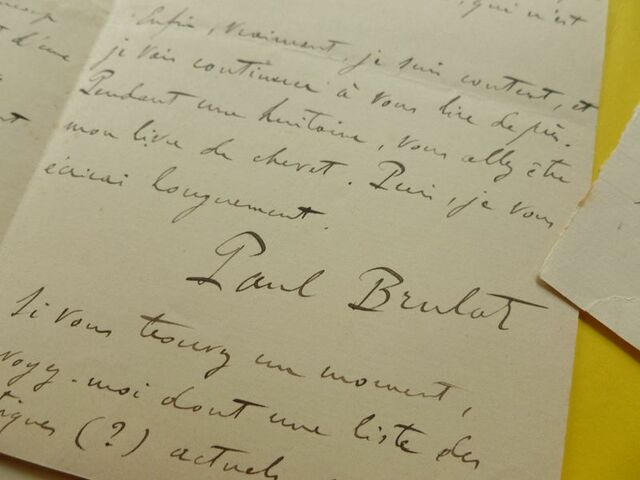 , qui n'est
Enfin, vraiment, je suis content, et
je vais continuer à vous lire de près.
Pendant une huitaine, vous allez être
mon livre de chevet. Puis, je vous
écrirai longuement.
Paul Brulat
Si vous trouvez un moment,
voyez-moi donc une liste des
tiques (?) actuels